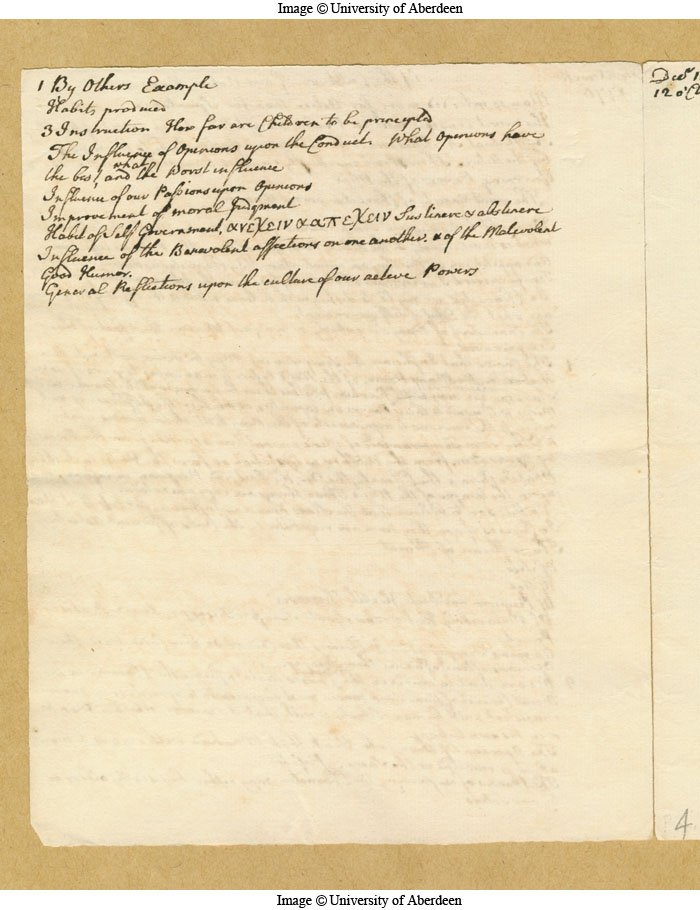 Image © University of Aberdeen
1 By Others Example
Habits produced
3 Instruction How far are Children to be principled
The Influence of Opinions upon the Conduct. What Openions have
the best and what the Worst influence
Influence of our Passions upon Openions
Improvement of moral Judgment
Habit of Self Government, ανεχειν & απεχειν Sustinere & abstinere
Influence of the Benevolent affections on one another. & of the Malevolent
Good Humor.
General Reflections upon the culture of our active Powers
Decr 1
12 o'Cl
4
Image © University of Aberdeen